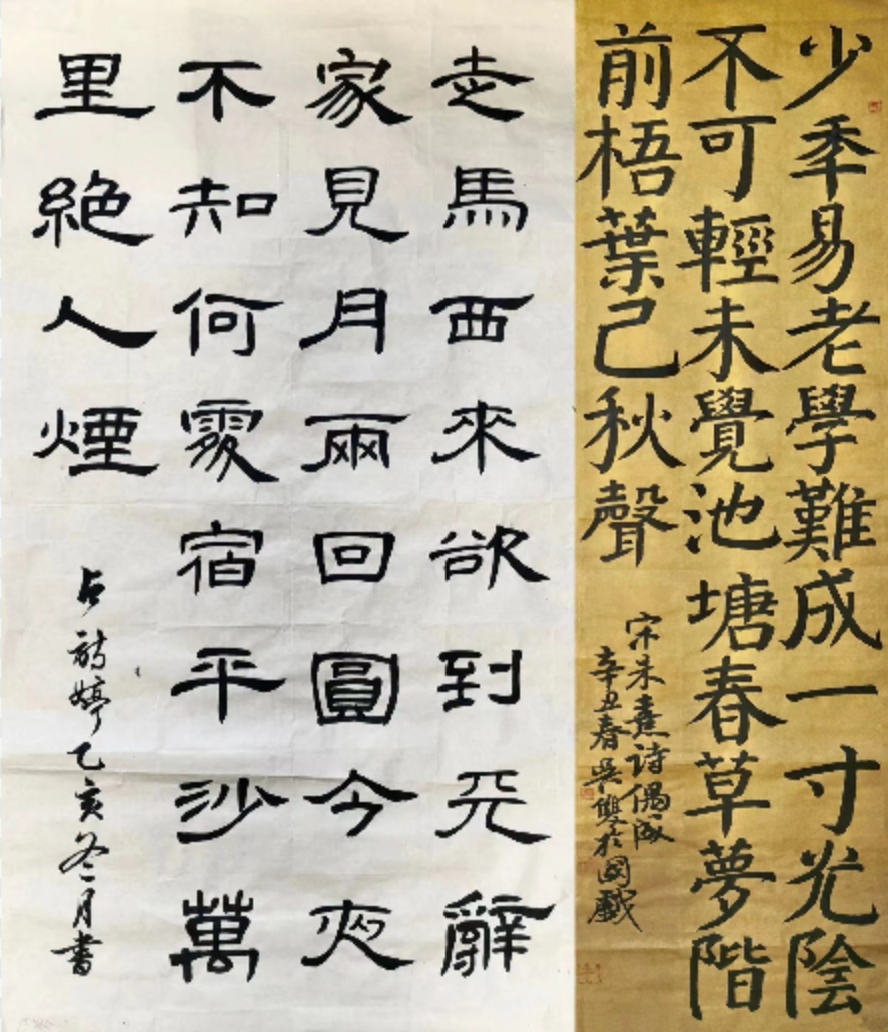 少秊易老學難成一寸光陰
不可輕未覺池塘春草夢階
前梧葉己秋聲
宋朱熹诗偶成
辛丑春吳雙於國戲
走馬西來欲到天辭
家見月兩回圓今夜
不知何處宿平沙萬
里絶人煙
婷乙亥冬月書